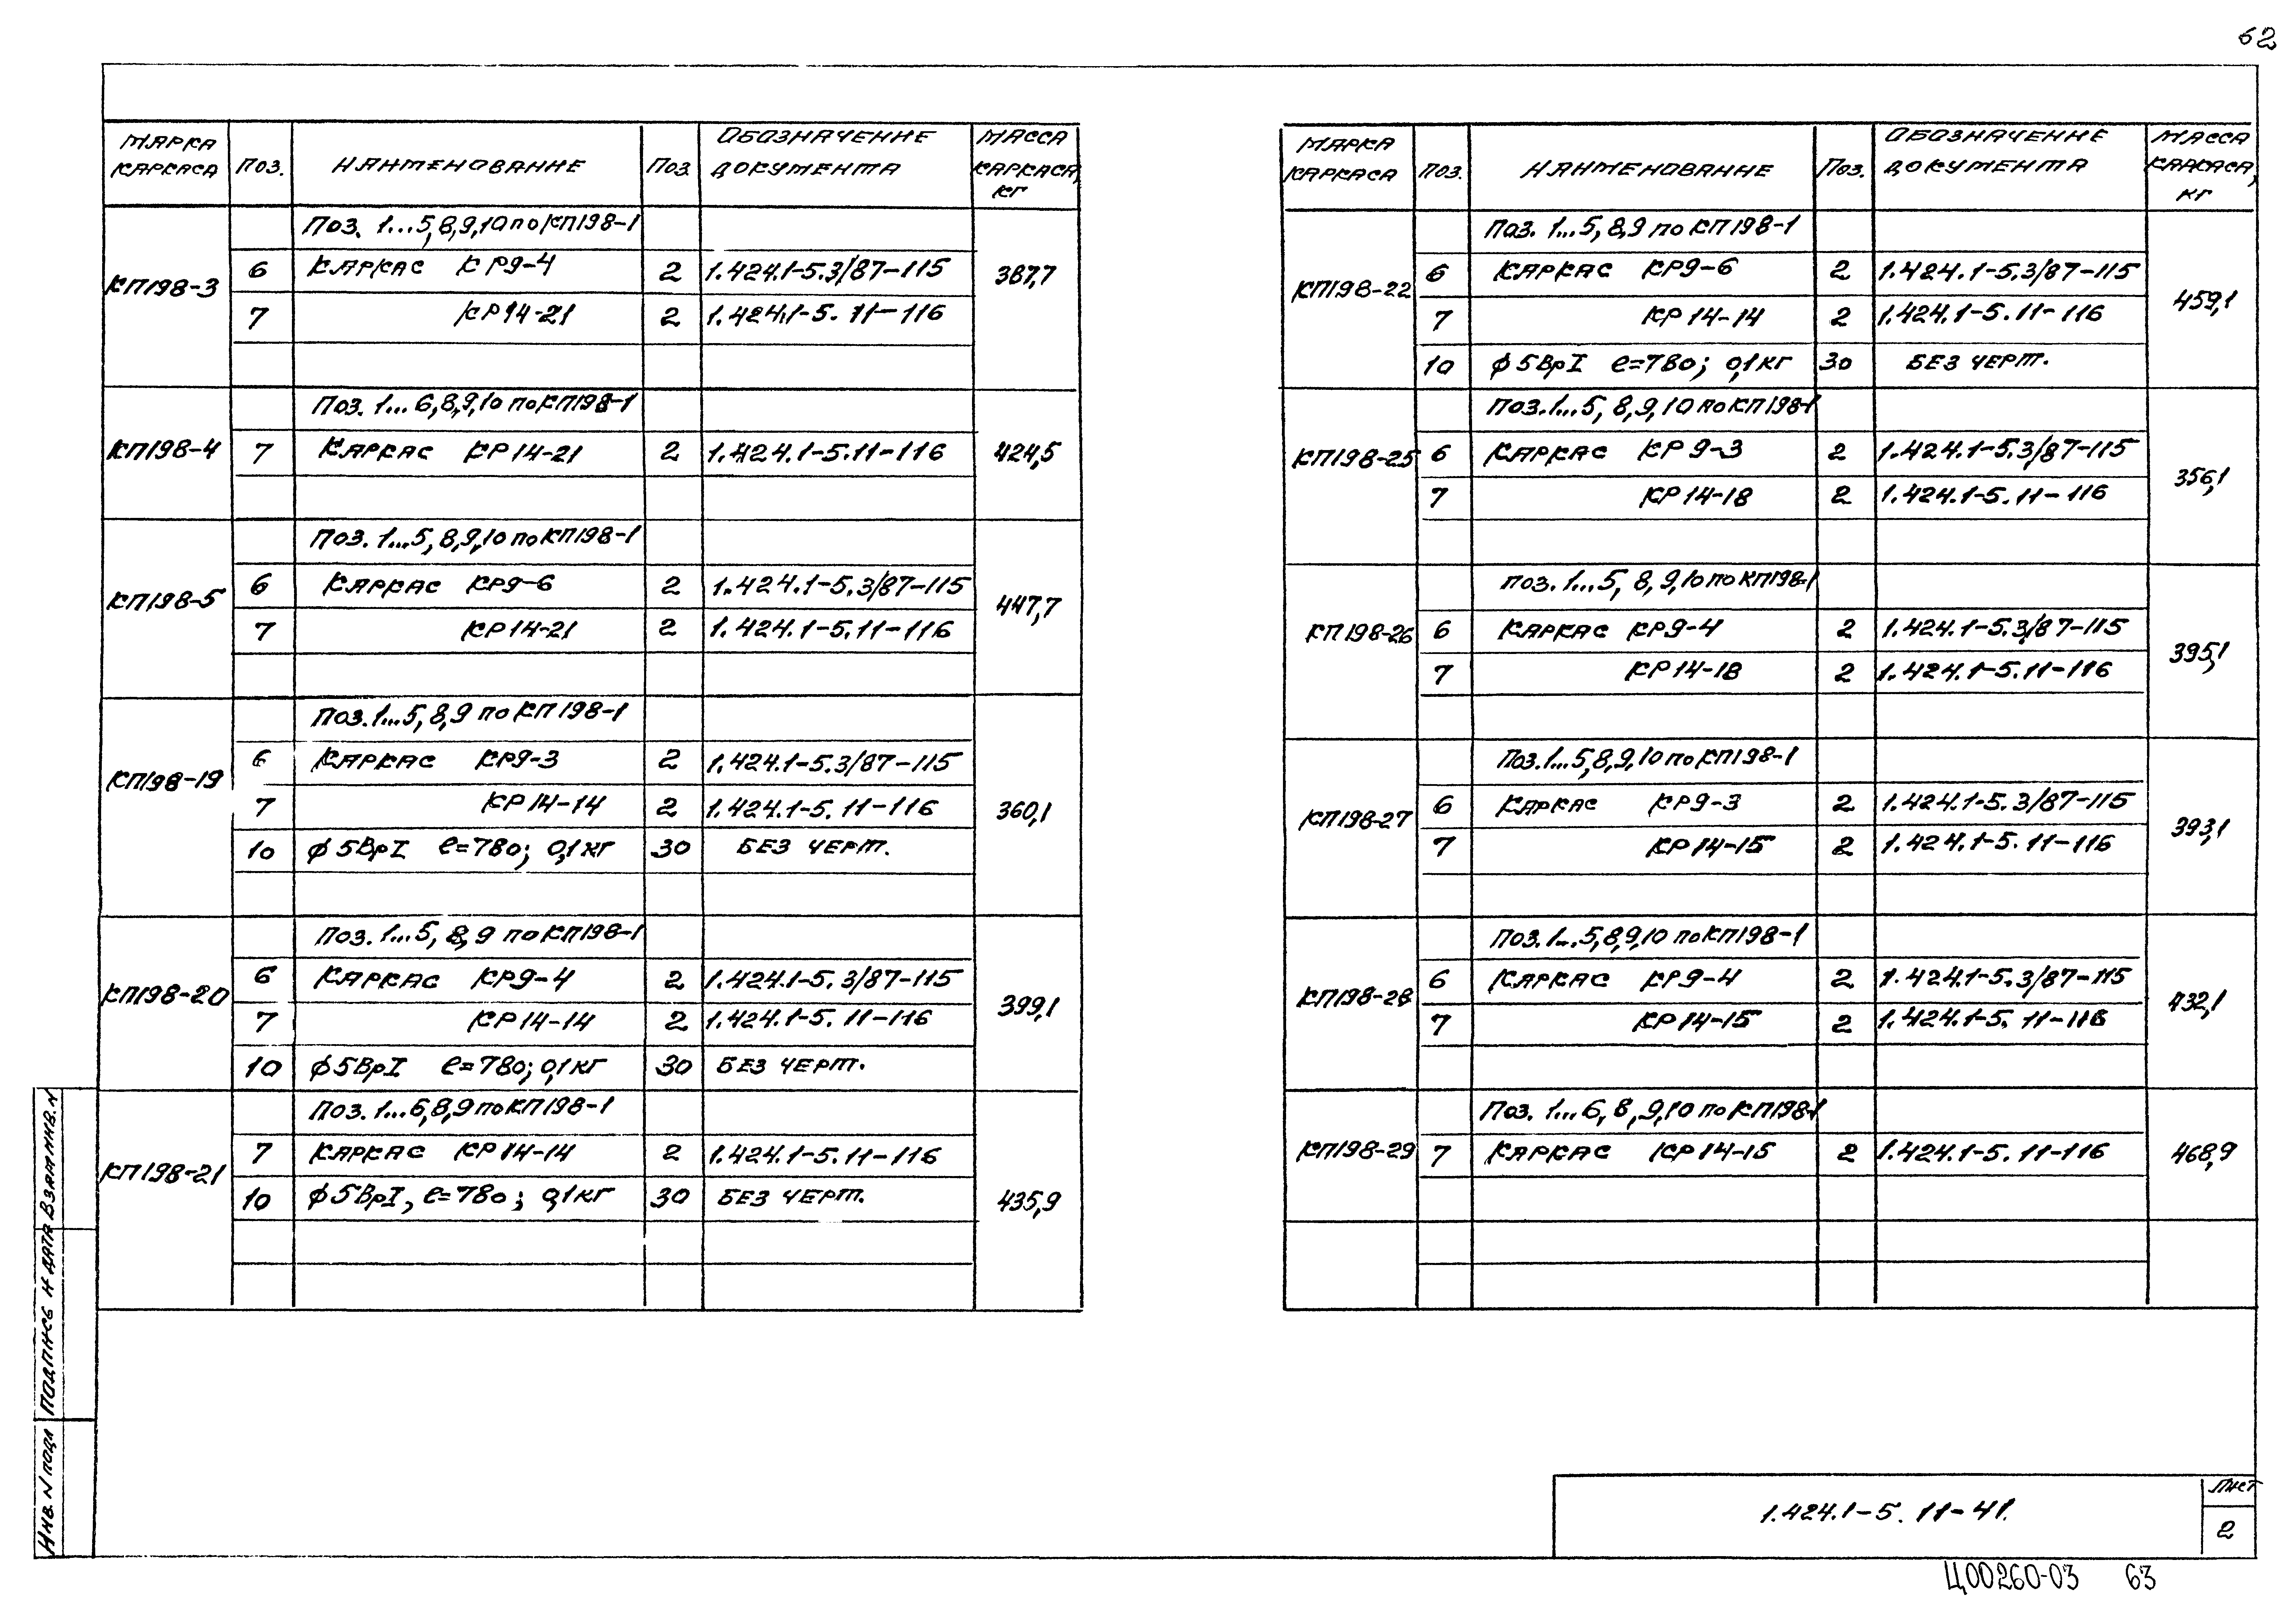 62
МАРКА КАРКАСА ПОЗ. НАИМЕНОВАНИЕ ПОЗ. ОБОЗНАЧЕНИЕ ДОКУМЕНТА МАССА КАРКАСА, КГ
Поз. 1...5,8,9,10 по КП198-1
КП198-3 6 КАРКАС КР9-4 2 1.424.1-5.3/87-115 387,7
7 КР14-21 2 1.424.1-5. 11-116
Поз. 1...6,8,9,10 по КП198-1
КП198-4 7 КАРКАС КР14-21 2 1.424.1-5.11-116 424,5
Поз. 1...5,8,9,10 по КП198-1
КП198-5 6 КАРКАС КР9-6 2 1.424.1-5.3/87-115 447,7
7 КР14-21 2 1.424.1-5.11-116
Поз. 1...5,8,9 по КП198-1
КП198-19 6 КАРКАС КР9-3 2 1.424.1-5.3/87-115 360,1
7 КР14-14 2 1.424.1-5. 11-116
10 ϕ5ВрI ℓ=780; 0,1кг 30 БЕЗ ЧЕРТ.
Поз. 1...5, 8,9 по КП198-1
КП198-20 6 КАРКАС КР9-4 2 1.424.1-5.3/87-115 399,1
7 КР14-14 2 1.424.1-5. 11-116
10 ϕ5ВрI ℓ=780; 0,1кг 30 БЕЗ ЧЕРТ.
Поз. 1...6,8,9 по КП198-1
КП198-21 7 КАРКАС КР14-14 2 1.424.1-5.11-116 435,9
10 ϕ5ВрI, ℓ=780; 0,1кг 30 БЕЗ ЧЕРТ.
МАРКА КАРКАСА ПОЗ. НАИМЕНОВАНИЕ ПОЗ. ОБОЗНАЧЕНИЕ ДОКУМЕНТА МАССА КАРКАСА, КГ
Поз. 1...5,8,9 по КП198-1
КП198-22 6 КАРКАС КР9-6 2 1.424.1-5.3/87-115 459,1
7 КР14-14 2 1.424.1-5.11-116
10 ϕ5ВрI ℓ=780; 0,1кг 30 БЕЗ ЧЕРТ.
Поз. 1...5, 8,9,10 по КП198-1
КП198-25 6 КАРКАС КР9-3 2 1.424.1-5.3/87-115 356,1
7 КР14-18 2 1.424.1-5.11-116
Поз. 1...5, 8,9,10 по КП198-1
КП198-26 6 КАРКАС КР9-4 2 1.424.1-5.3/87-115 395,1
7 КР14-18 2 1.424.1-5.11-116
Поз. 1...5,8,9,10 по КП198-1
КП198-27 6 КАРКАС КР9-3 2 1.424.1-5.3/87-115 393,1
7 КР14-15 2 1.424.1-5. 11-116
Поз. 1...5,8,9,10 по КП198-1
КП198-28 6 КАРКАС КР9-4 2 1.424.1-5.3/87-115 432,1
7 КР14-15 2 1.424.1-5. 11-116
Поз. 1...6,8,9,10 по КП198-1
КП198-29 7 КАРКАС КР14-15 2 1.424.1-5. 11-116 468,9
ИНВ. N подл ПОДПИСЬ И ДАТА ВЗАМ ИНВ. N
1.424.1-5. 11-41.
ЛИСТ
2
Ц00260-03 63